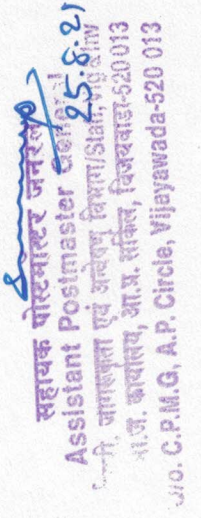 सहायक पोस्टमास्टर जनरल
Assistant Postmaster General
25.8.21
जागरूकता एवं अन्वेषण विभाग/Staff,
कार्यालय, आ.प्र. सर्किल, विजयवाडा-520 013
C.P.M.G, A.P. Circle, Vijayawada-520 013